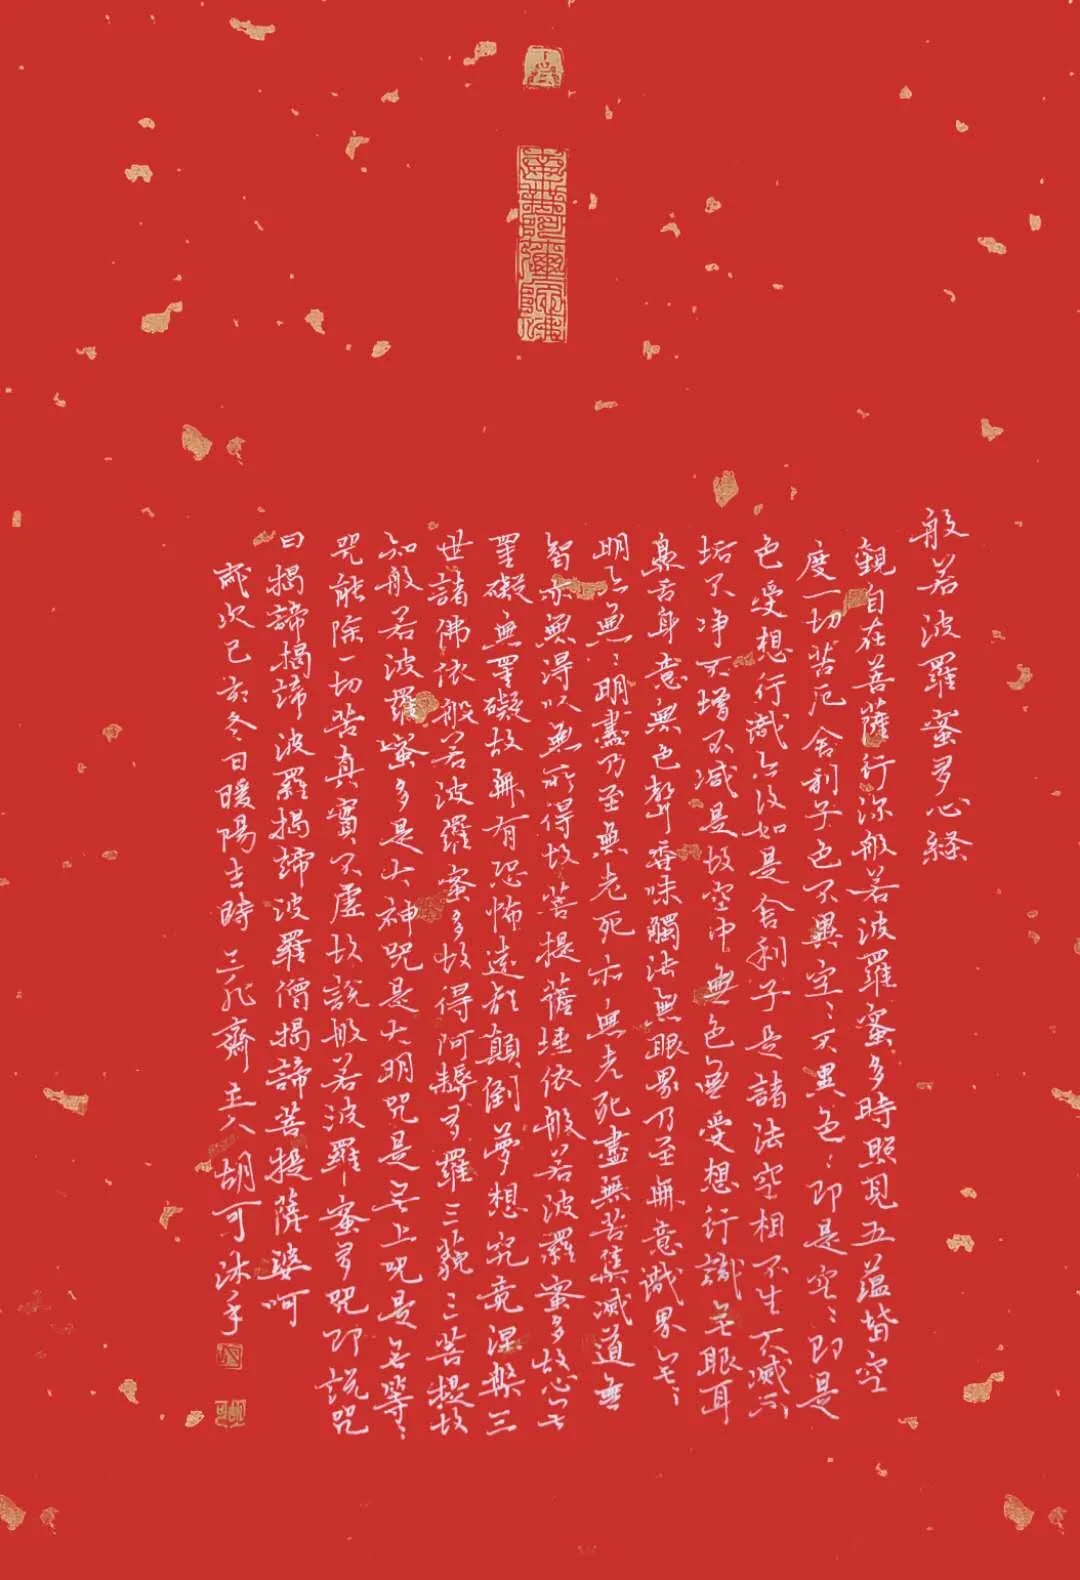 南無阿彌陀佛
般若波羅蜜多心経
觀自在菩薩行深般若波羅蜜多時照見五蘊皆空
度一切苦厄舍利子色不異空〻不異色〻即是空〻即是
色受想行識亦復如是舍利子是諸法空相不生不滅不
垢不净不增不减是故空中無色無受想行識无眼耳
鼻舌身意無色聲香味觸法無眼界乃至無意識界無〻
明亦無〻明盡乃至無老死亦〻無老死盡無苦集滅道無
智亦無得以無所得故菩提薩埵依般若波羅蜜多故心无
罣礙無罣礙故無有恐怖遠離顛倒夢想究竟涅槃三
世諸佛依般若波羅蜜多故得阿耨多羅三藐三菩提故
知般若波羅蜜多是大神咒是大明咒是无上咒是无等〻
咒能除一切苦真實不虛故說般若波羅蜜多咒即説咒
曰揭諦揭諦波羅揭諦波羅僧揭諦菩提薩婆呵
歲次己亥冬日暖陽吉時 齋主人胡可沐手